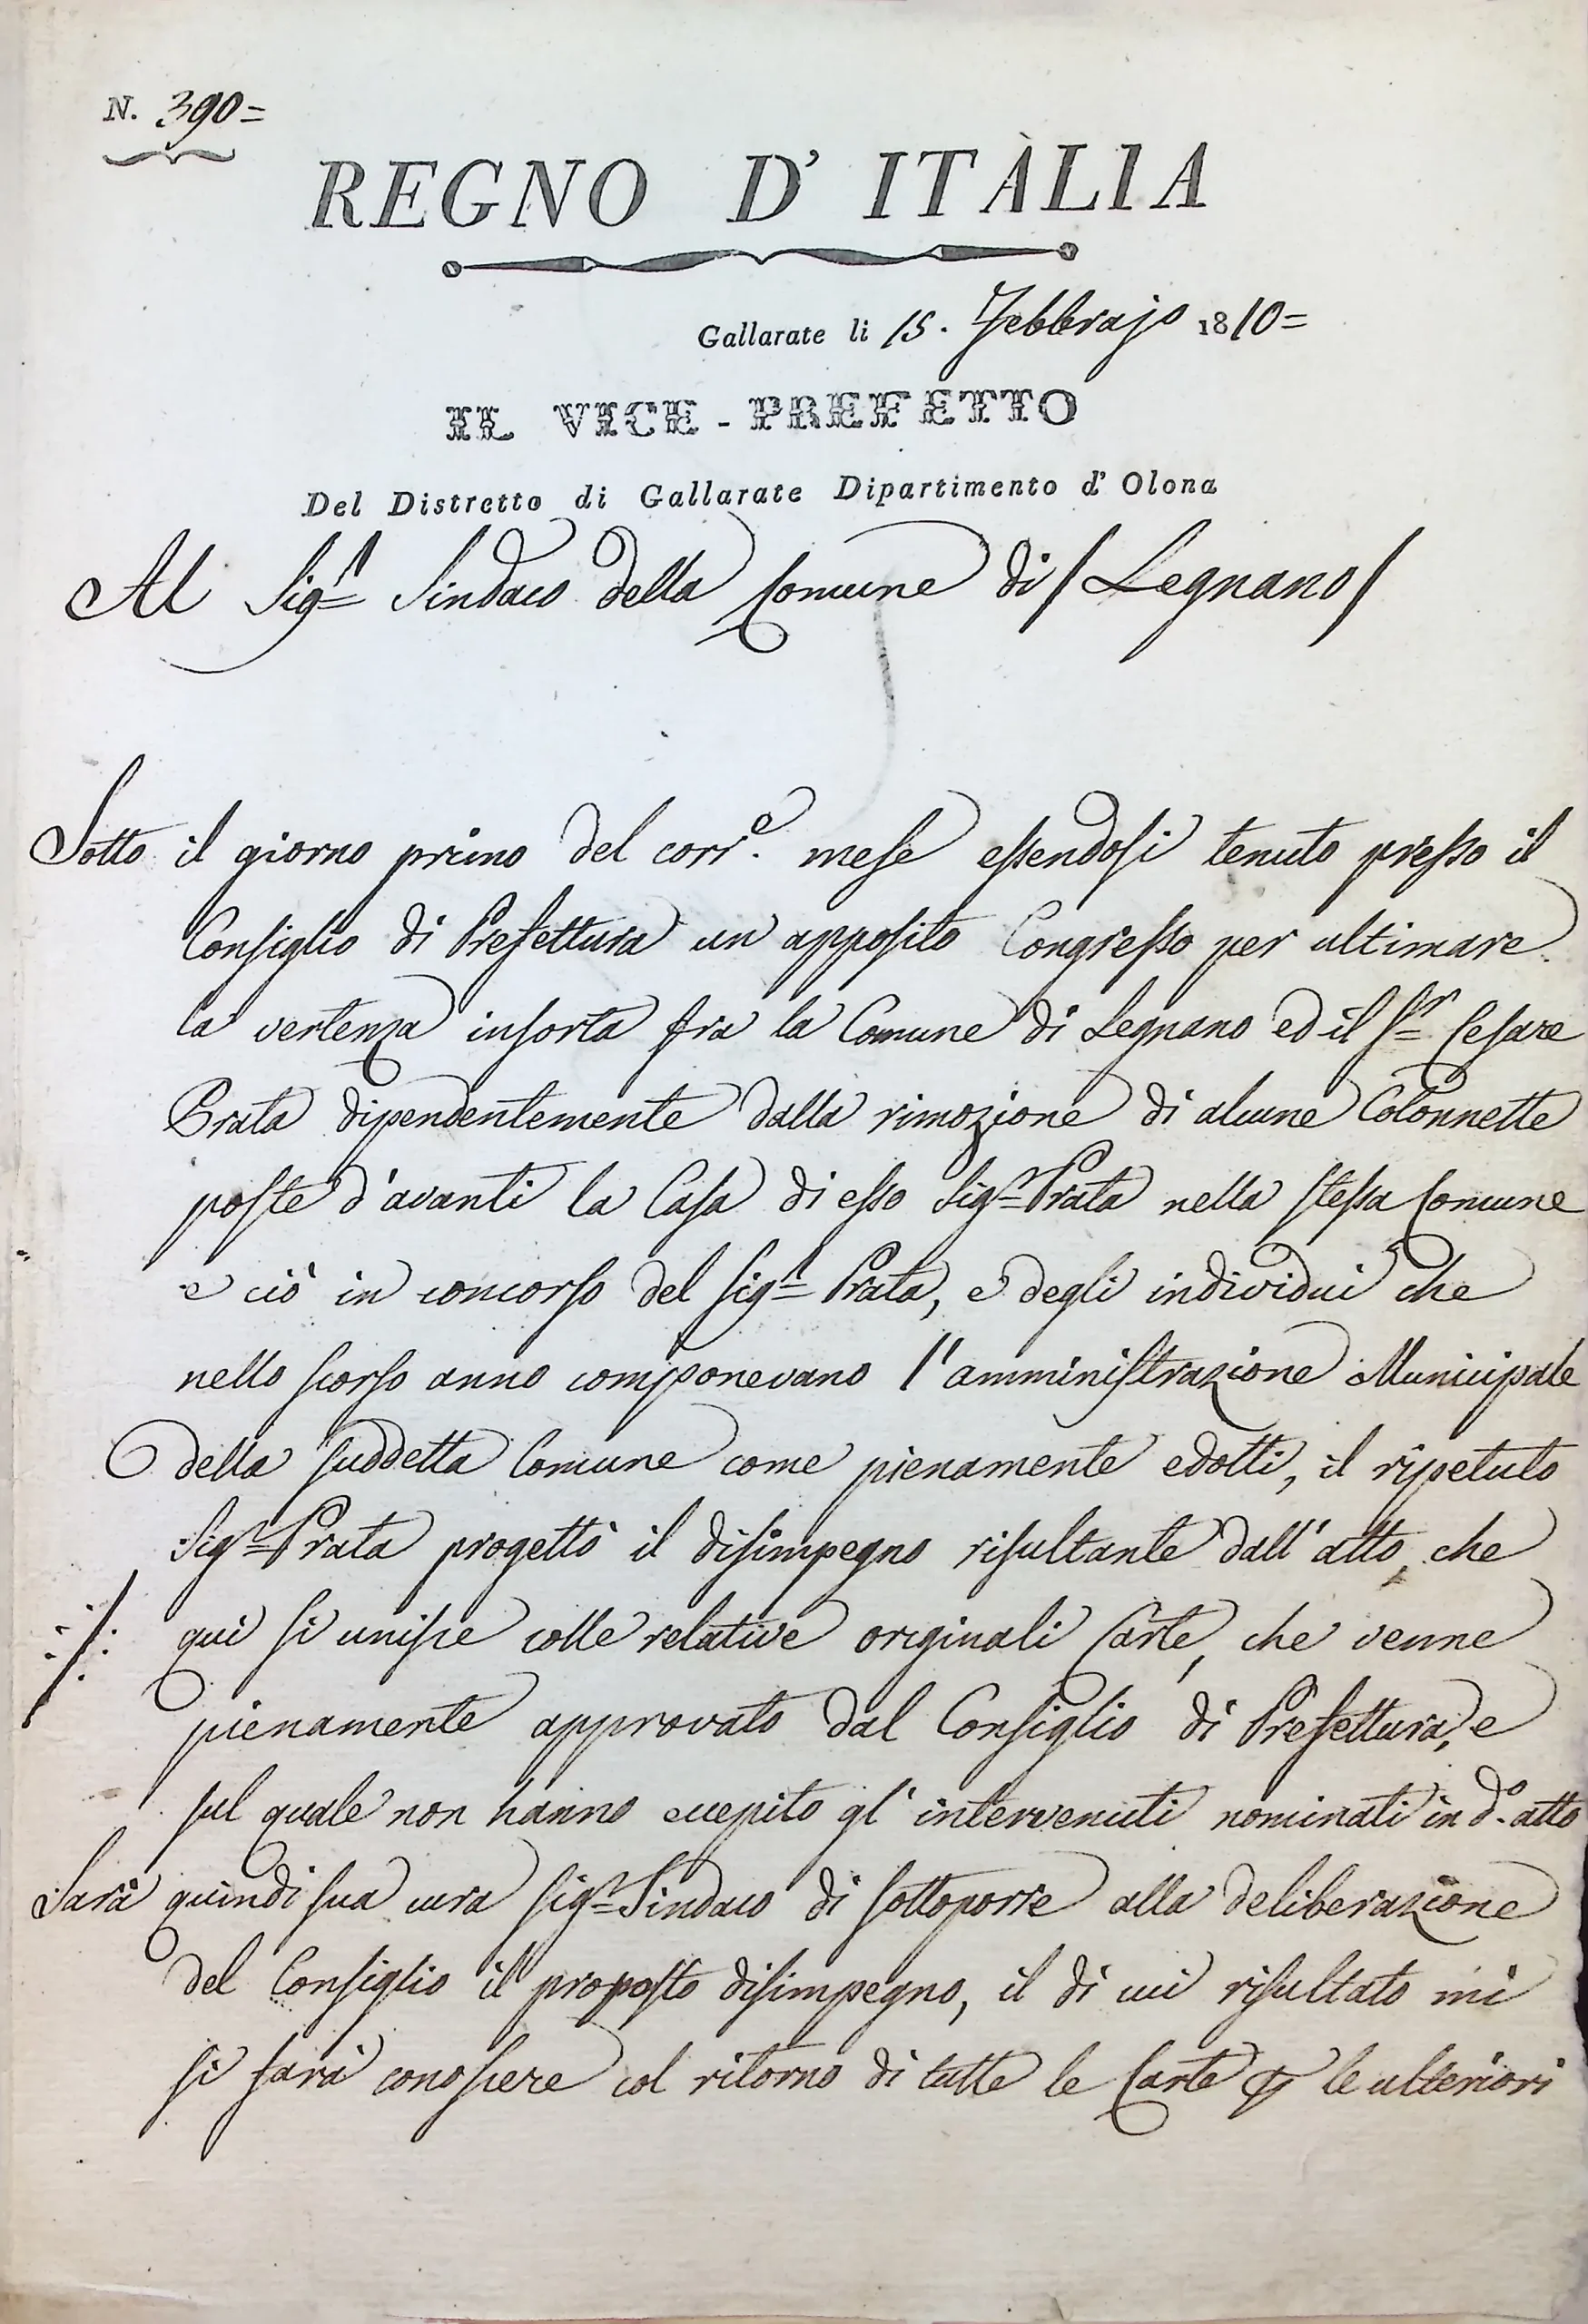 N. 390=
REGNO D' ITÀLIA
Gallarate li 15. Febbrajo 1810=
IL VICE-PREFETTO
Del Distretto di Gallarate Dipartimento d' Olona
Al Sig.r Sindaco della Comune di /Legnano/
Sotto il giorno primo del corr.e mese essendosi tenuto presso il
Consiglio di Prefettura un apposito Congresso per ultimare
la vertenza insorta fra la Comune di Legnano ed il S.r Cesare
Prata dipendentemente dalla rimozione di alcune Colonnette
poste d'avanti la Casa di esso Sig.r Prata nella stessa Comune
e ciò in concorso del Sig.r Prata, e degli individui che
nello scorso anno componevano l'amministrazione Municipale
della suddetta Comune come pienamente edotti, il ripetuto
Sig.r Prata progettò il disimpegno risultante dall'atto, che
qui si unisce colle relative originali Carte, che venne
pienamente approvato dal Consiglio di Prefettura, e
sul quale non hanno eccepito gl'intervenuti nominati in d.o atto
Sarà quindi sua cura Sig.r Sindaco di sottoporre alla deliberazione
del Consiglio il proposto disimpegno, il di cui risultato mi
si farà conoscere col ritorno di tutte le Carte le ulteriori